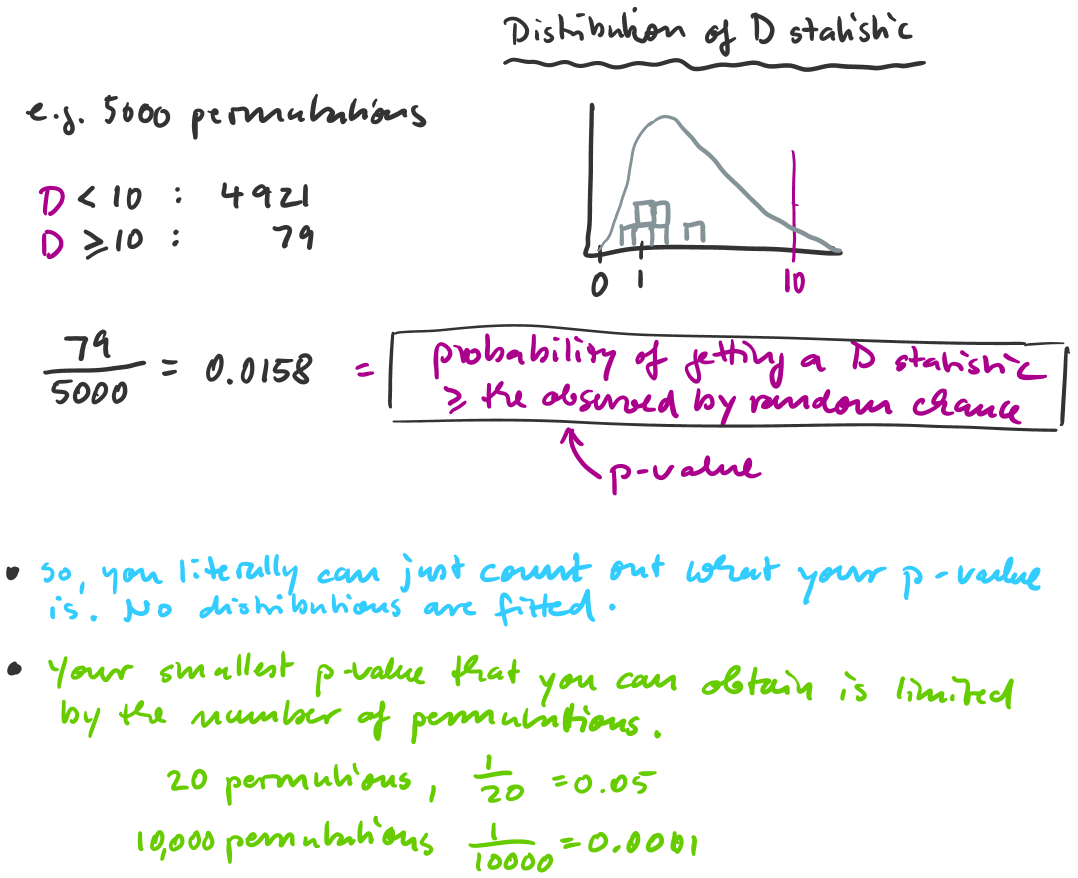 Distribution of D statistic
e.g. 5000 permutations
D < 10 : 4921
D ≥ 10 : 79
0 1 10
79/5000 = 0.0158 = probability of getting a D statistic
≥ the observed by random chance
p-value
• so, you literally can just count out what your p-value
is. No distributions are fitted.
• Your smallest p-value that you can obtain is limited
by the number of permutations.
20 permutions, 1/20 = 0.05
10,000 permutations 1/10000 = 0.0001